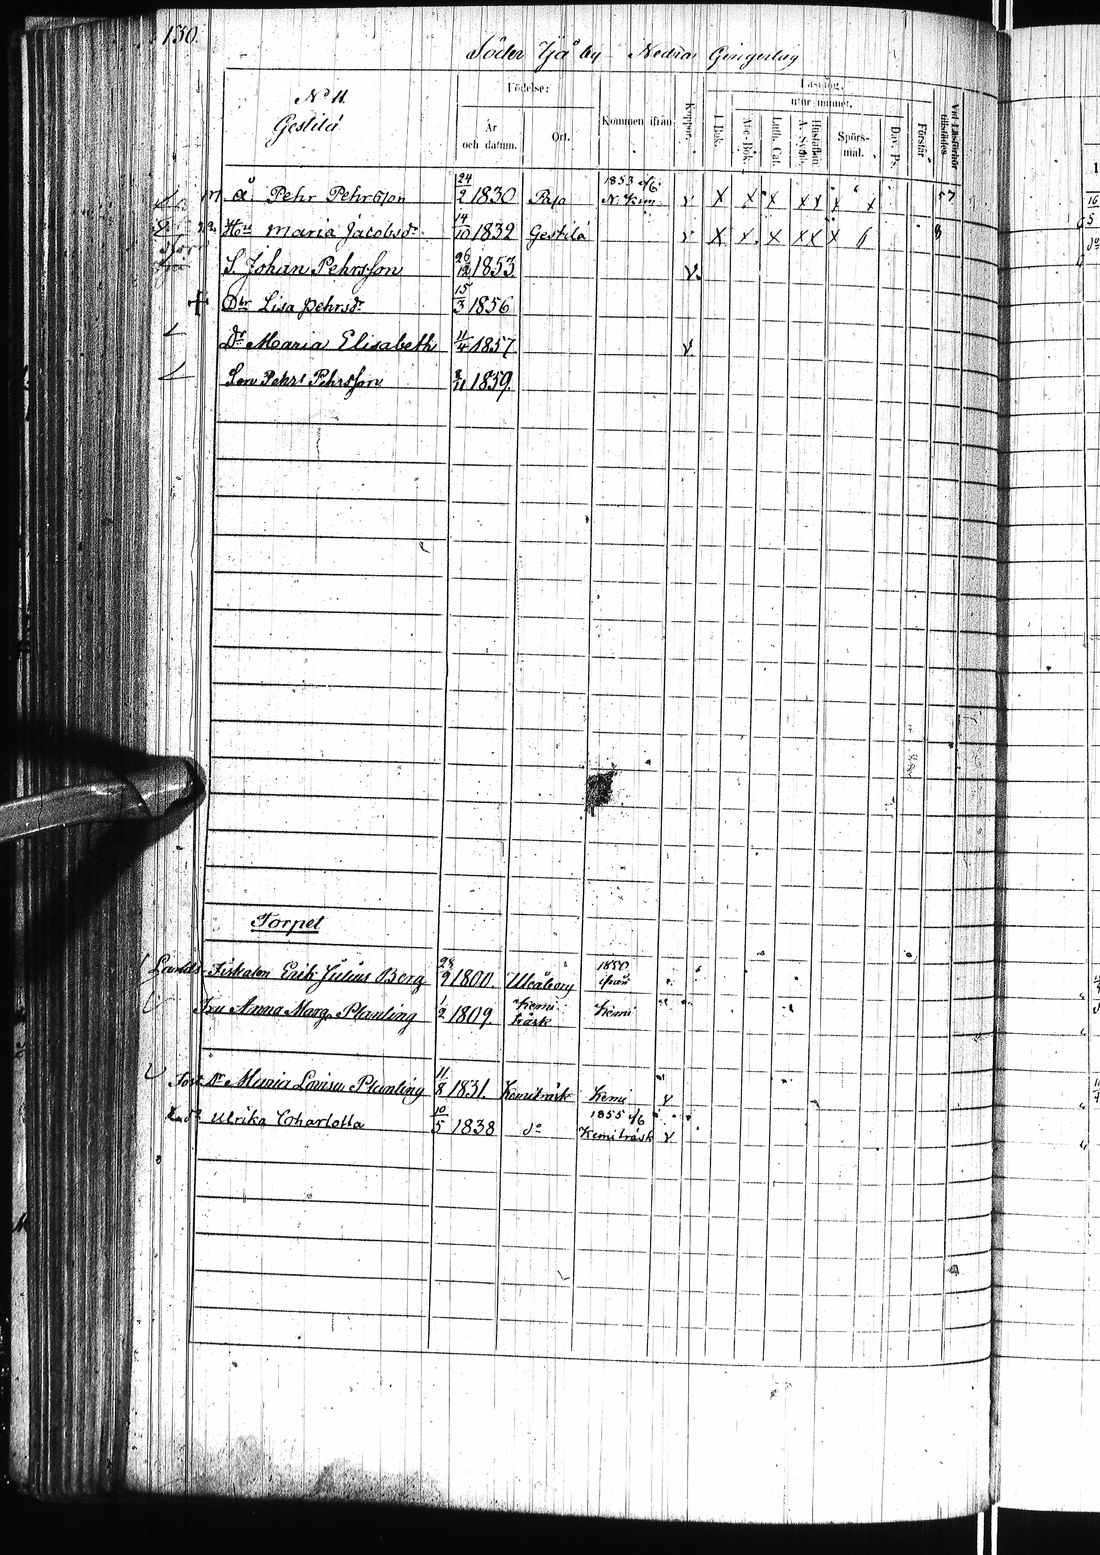 130.
Söder Ijå by Nedra Gingerlag
No 11.
Gestilä
Födelse:
År och datum.
Ort.
Kommen ifrån
Koppor.
Läsning.
utur minnet.
I Bok.
Abc-Bok.
Luth. Cat.
Hustaflan. A. Symb.
Spörs-mål.
Dav. Ps.
Förstår
Vid Läsförhör tillstädes
å Pehr Pehrsson 24/2 1830 1853 N. Kem v X X X X X X X 57
Hru Maria Jacobsdr 14/10 1832 Gestilä v X X X X X X 8
S. Johan Pehrsson 26/12 1853 v
Dtr Lisa Pehrsdr 15/3 1856
Dr Maria Elisabeth 11/4 1857 v
Son Pehr Pehrsson 8/11 1859.
Torpet
Lands Fiskalen Erik Julius Berg 28/9 1800. Uleåborg 1850
Fru Anna Marg. Planting 1/2 1809. Kemi träsk Kemi
Fost. Dr Maria Lovisa Planting 11/8 1831. Kemiträsk Kemi v
do Ulrika Charlotta 10/5 1838 do 1855 Kemi träsk v